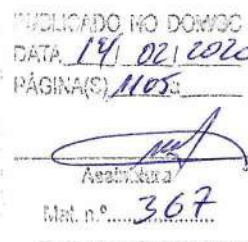 PUBLICADO NO DOM/GO
DATA 14/ 02/ 2020
PÁGINA(S)
Assinatura
Mat. n.º 367